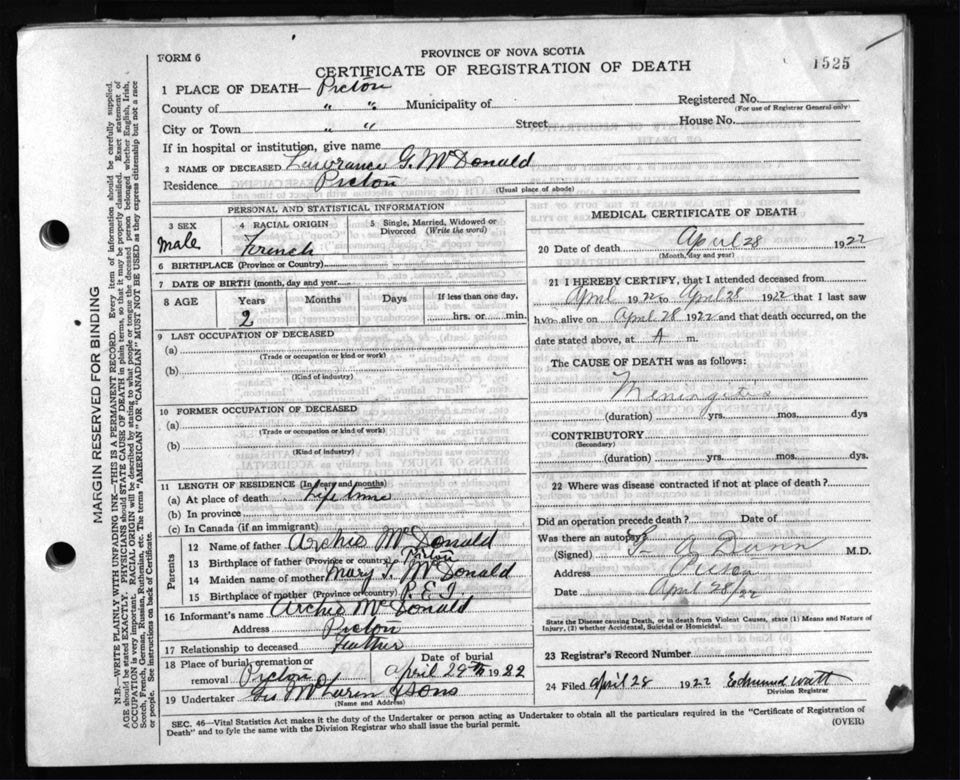 FORM 6
PROVINCE OF NOVA SCOTIA
1525
CERTIFICATE OF REGISTRATION OF DEATH
1 PLACE OF DEATH— Pictou
County of " " Municipality of Registered No.
(For use of Registrar General only)
City or Town " " Street House No.
If in hospital or institution, give name
2 NAME OF DECEASED Lawrance G. McDonald
Residence Pictou
(Usual place of abode)
PERSONAL AND STATISTICAL INFORMATION
3 SEX 4 RACIAL ORIGIN 5 Single, Married, Widowed or Divorced (Write the word)
Male French
6 BIRTHPLACE (Province or Country)
7 DATE OF BIRTH (month, day and year
8 AGE Years Months Days If less than one day,
2 hrs. or min.
9 LAST OCCUPATION OF DECEASED
(a)
(Trade or occupation or kind or work)
(b)
(Kind of industry)
10 FORMER OCCUPATION OF DECEASED
(a)
(Trade or occupation or kind of work)
(b)
(Kind of industry)
11 LENGTH OF RESIDENCE (In years and months)
(a) At place of death Life time
(b) In province
(c) In Canada (if an immigrant)
Parents
12 Name of father Archie McDonald
13 Birthplace of father (Province or country) Pictou
14 Maiden name of mother Mary J. McDonald
15 Birthplace of mother (Province or country) P.E.I
16 Informant's name Archie McDonald
Address Pictou
17 Relationship to deceased Father
18 Place of burial, cremation or removal Pictou Date of burial April 29th 1922
19 Undertaker Geo McLaren & Sons
(Name and Address)
MEDICAL CERTIFICATE OF DEATH
20 Date of death April 28 1922
(Month, day and year)
21 I HEREBY CERTIFY, that I attended deceased from
April 1922 to April 28 1922 that I last saw
him alive on April 28 1922 and that death occurred, on
date stated above, at A m.
The CAUSE OF DEATH was as follows:
Meningitis
(duration) yrs. mos. dys
CONTRIBUTORY
(Secondary)
(duration) yrs. mos. dys.
22 Where was disease contracted if not at place of death?
Did an operation precede death? Date of
Was there an autopsy?
(Signed) Dunn M.D.
Address Pictou
Date April 28/22
State the Disease causing Death, or in death from Violent Causes, state (1) Means and Nature of
Injury, (2) whether Accidental, Suicidal or Homicidal.
23 Registrar's Record Number
24 Filed April 28 1922 Edmund Watt
Division Registrar
SEC. 46—Vital Statistics Act makes it the duty of the Undertaker or person acting as Undertaker to obtain all the particulars required in the "Certificate of Registration of
Death" and to fyle the same with the Division Registrar who shall issue the burial permit.
(OVER)
MARGIN RESERVED FOR BINDING
N.B.—WRITE PLAINLY WITH UNFADING INK—THIS IS A PERMANENT RECORD. Every item of information should be carefully supplied.
AGE should be stated EXACTLY. PHYSICIANS should STATE CAUSE OF DEATH in plain terms, so that it may be properly classified. Exact statement of
OCCUPATION is very important. RACIAL ORIGIN will be described by stating to what people or tongue the deceased person belonged, whether English, Irish,
Scotch, French, German, Russian, Ruthenian, etc. The terms "AMERICAN" OR "CANADIAN" MUST NOT BE USED as they express citizenship but not a race
or people. See instructions on back of Certificate.